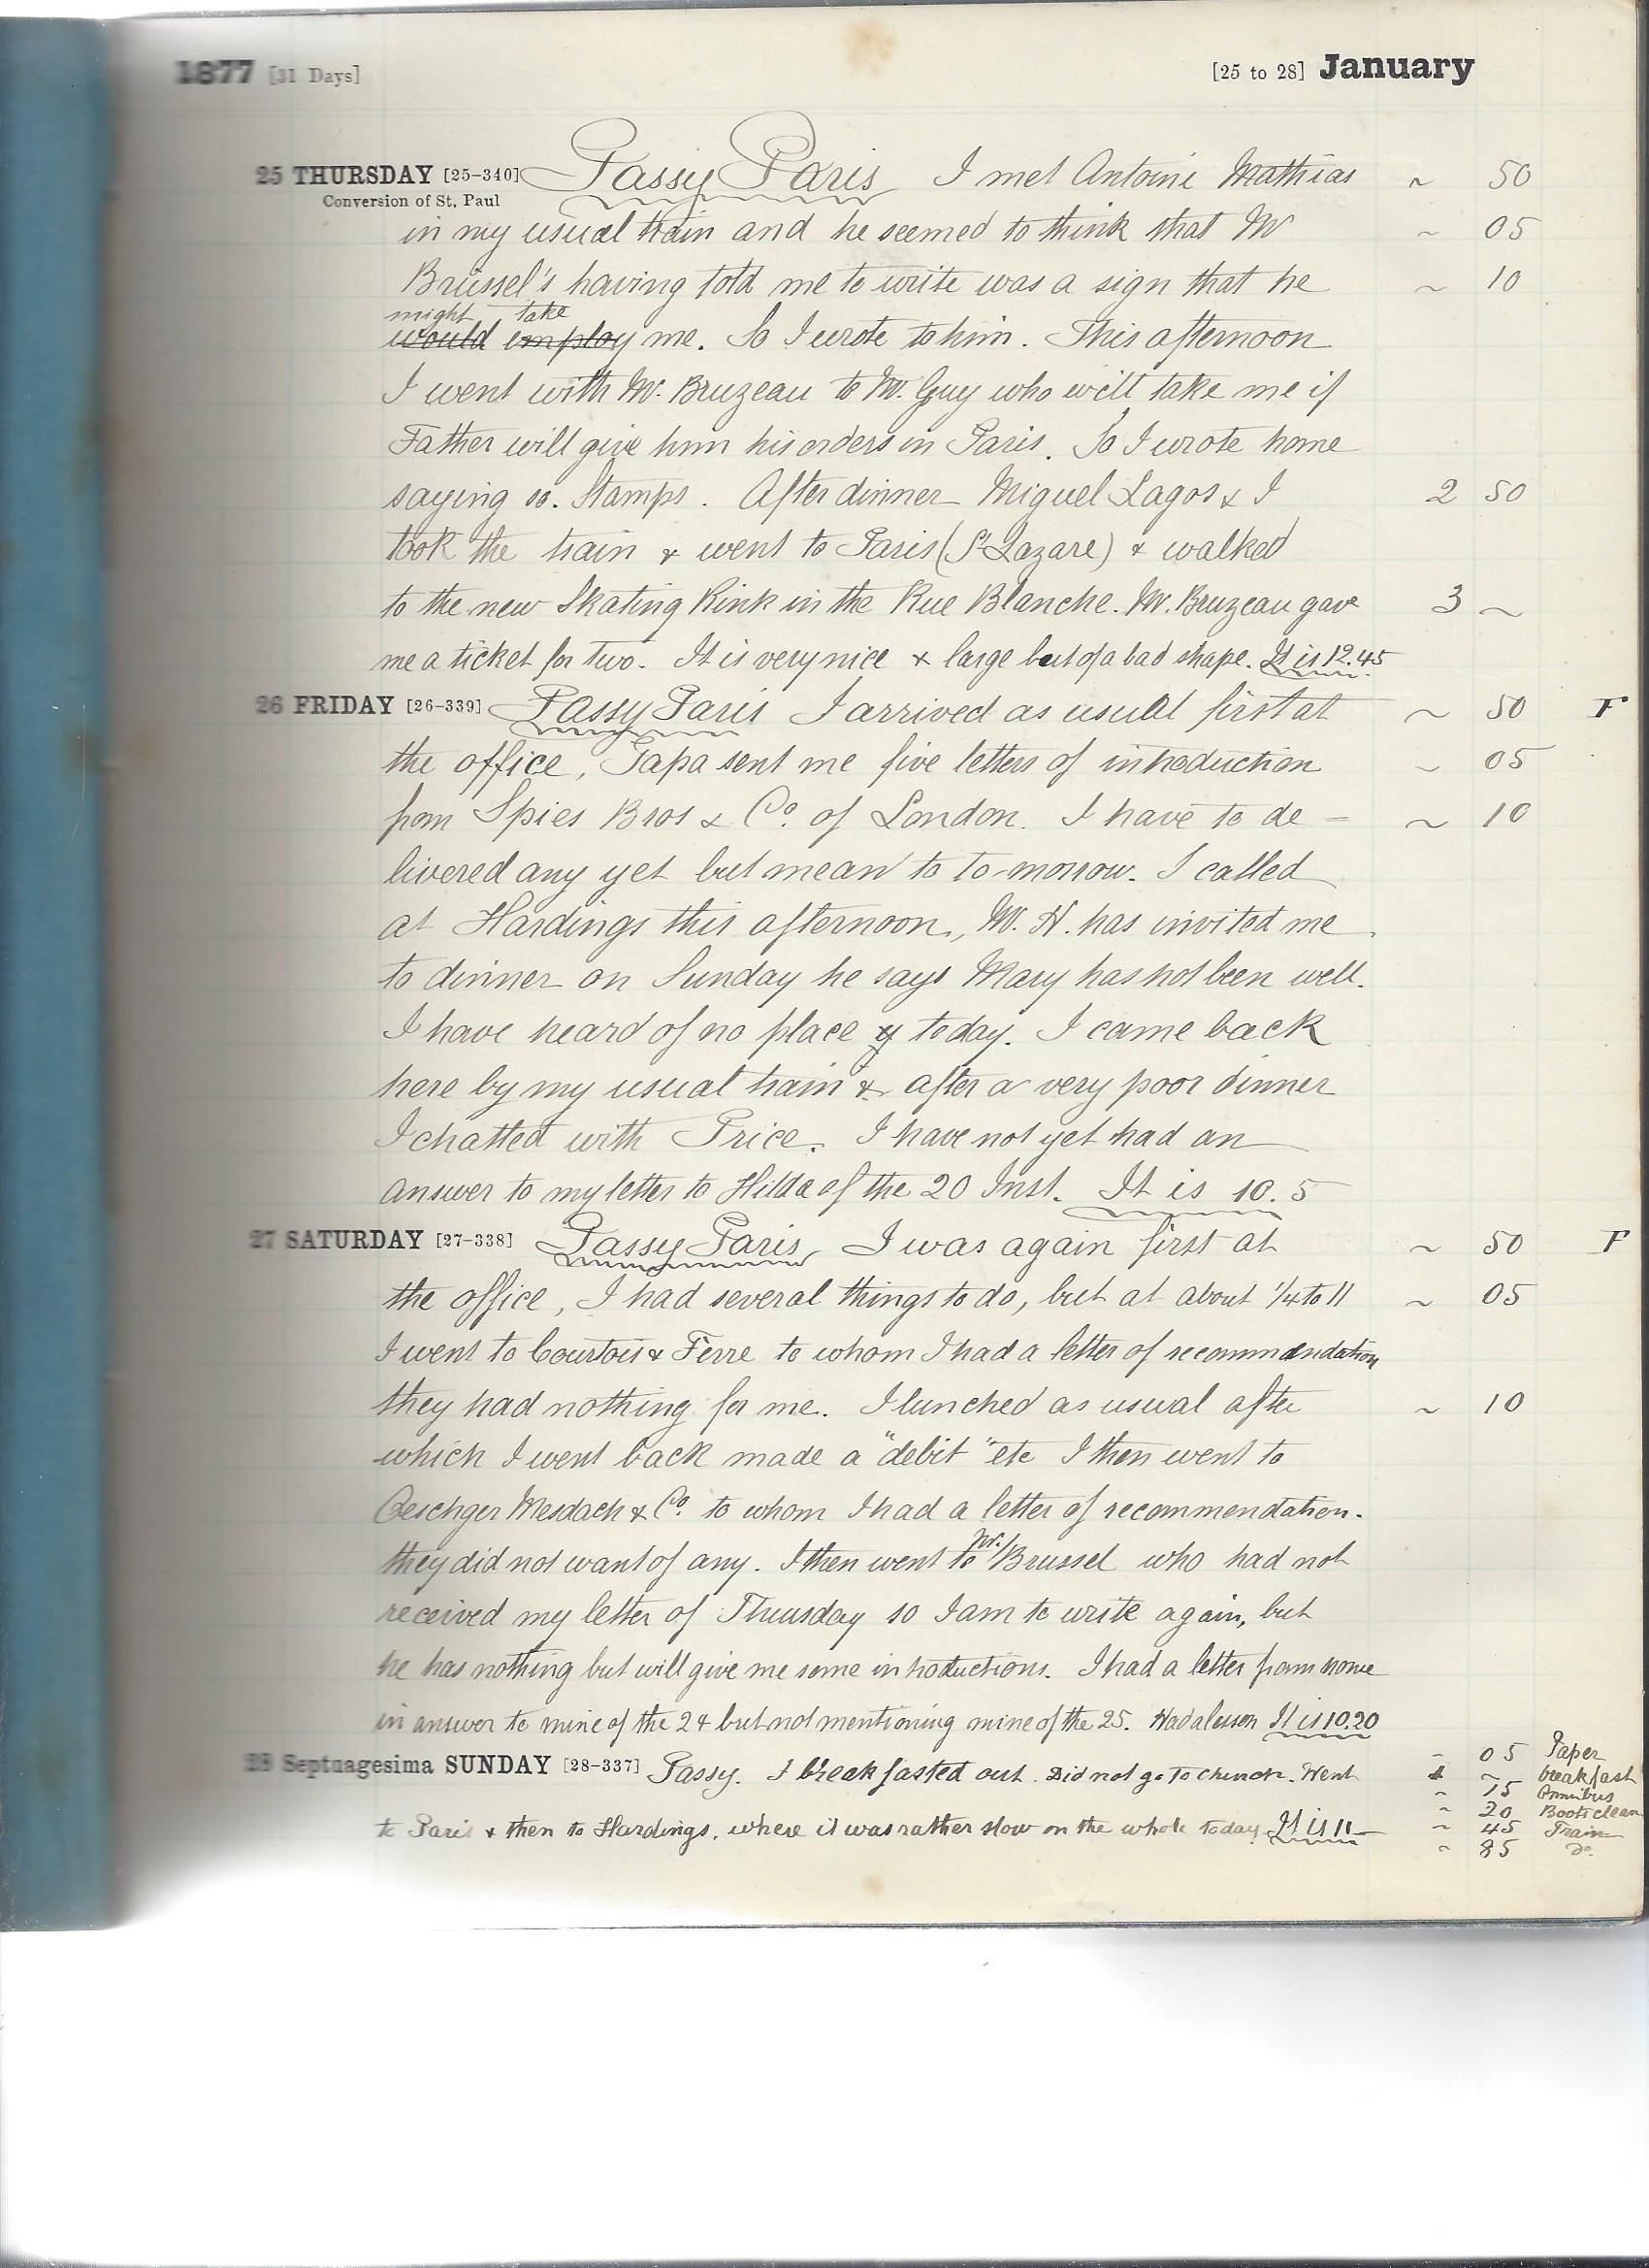 1877 [31 Days] [25 to 28] January
25 THURSDAY [25-340] Passy Paris I met Antoine Mathias ~ 50
Conversion of St. Paul
in my usual train and he seemed to think that Mr ~ 05
Brussel's having told me to write was a sign that he ~ 10
might take
would employ me. So I wrote to him. This afternoon
I went with Mr. Bruzeau to Mr. Guy who will take me if
Father will give him his orders in Paris. So I wrote home
saying so. Stamps. After dinner Miguel Lagos & I 2 50
took the train & went to Paris (St Lazare) & walked
to the new Skating Rink in the Rue Blanche. Mr. Bruzeau gave 3 ~
me a ticket for two. It is very nice & large but of a bad shape. It is 12.45
26 FRIDAY [26-339] Passy Paris I arrived as usual first at ~ 50 F
the office, Papa sent me five letters of introduction ~ 05
from Spies Bros & Co. of London. I have to de- ~ 10
livered any yet but mean to to-morrow. I called
at Hardings this afternoon, Mr. H. has invited me
to dinner on Sunday he says Mary has not been well.
I have heard of no place y today. I came back
here by my usual train & after a very poor dinner
I chatted with Price. I have not yet had an
answer to my letter to Hilda of the 20 Inst. It is 10.5
27 SATURDAY [27-338] Passy Paris, I was again first at ~ 50 F
the office, I had several things to do, but at about 1/4 to 11 ~ 05
I went to Courtois & Ferre to whom I had a letter of recommendation
they had nothing for me. I lunched as usual after ~ 10
which I went back made a "debit" etc I then went to
Oeschger Mesdach & Co. to whom I had a letter of recommendation.
they did not want of any. I then went to Mr. Brussel who had not
received my letter of Thursday so I am to write again, but
he has nothing but will give me some introductions. I had a letter from home
in answer to mine of the 24 but not mentioning mine of the 25. Had a lesson It is 10.20
28 Septuagesima SUNDAY [28-337] Passy. I breakfasted out. Did not go to church. Went
to Paris & then to Hardings, where it was rather slow on the whole today. It is 11
~ 05 Paper
1 ~ breakfast
~ 15 Omnibus
~ 20 Boots clean
~ 45 Train
~ 85 do.